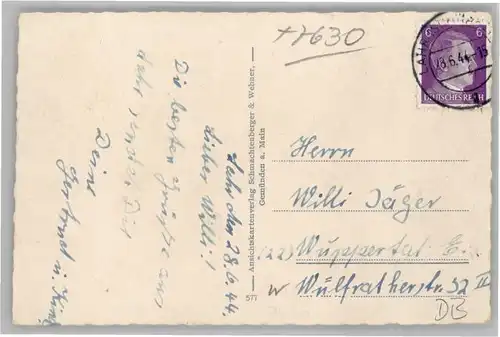 +7630
6 6
23.6.44.-15
DEUTSCHES REICH
Lahr den 28.6.44.
Lieber Willi!
Die besten Grüße aus
Lahr sendet Dir
Deine
Gertrud u. Kind
Ansichtskartenverlag Schmachtenberger & Wehner,
Gemünden a. Main
577
Herrn
Willi Jäger
(22) Wuppertal E.
Wülfratherstr. 32 II
DB